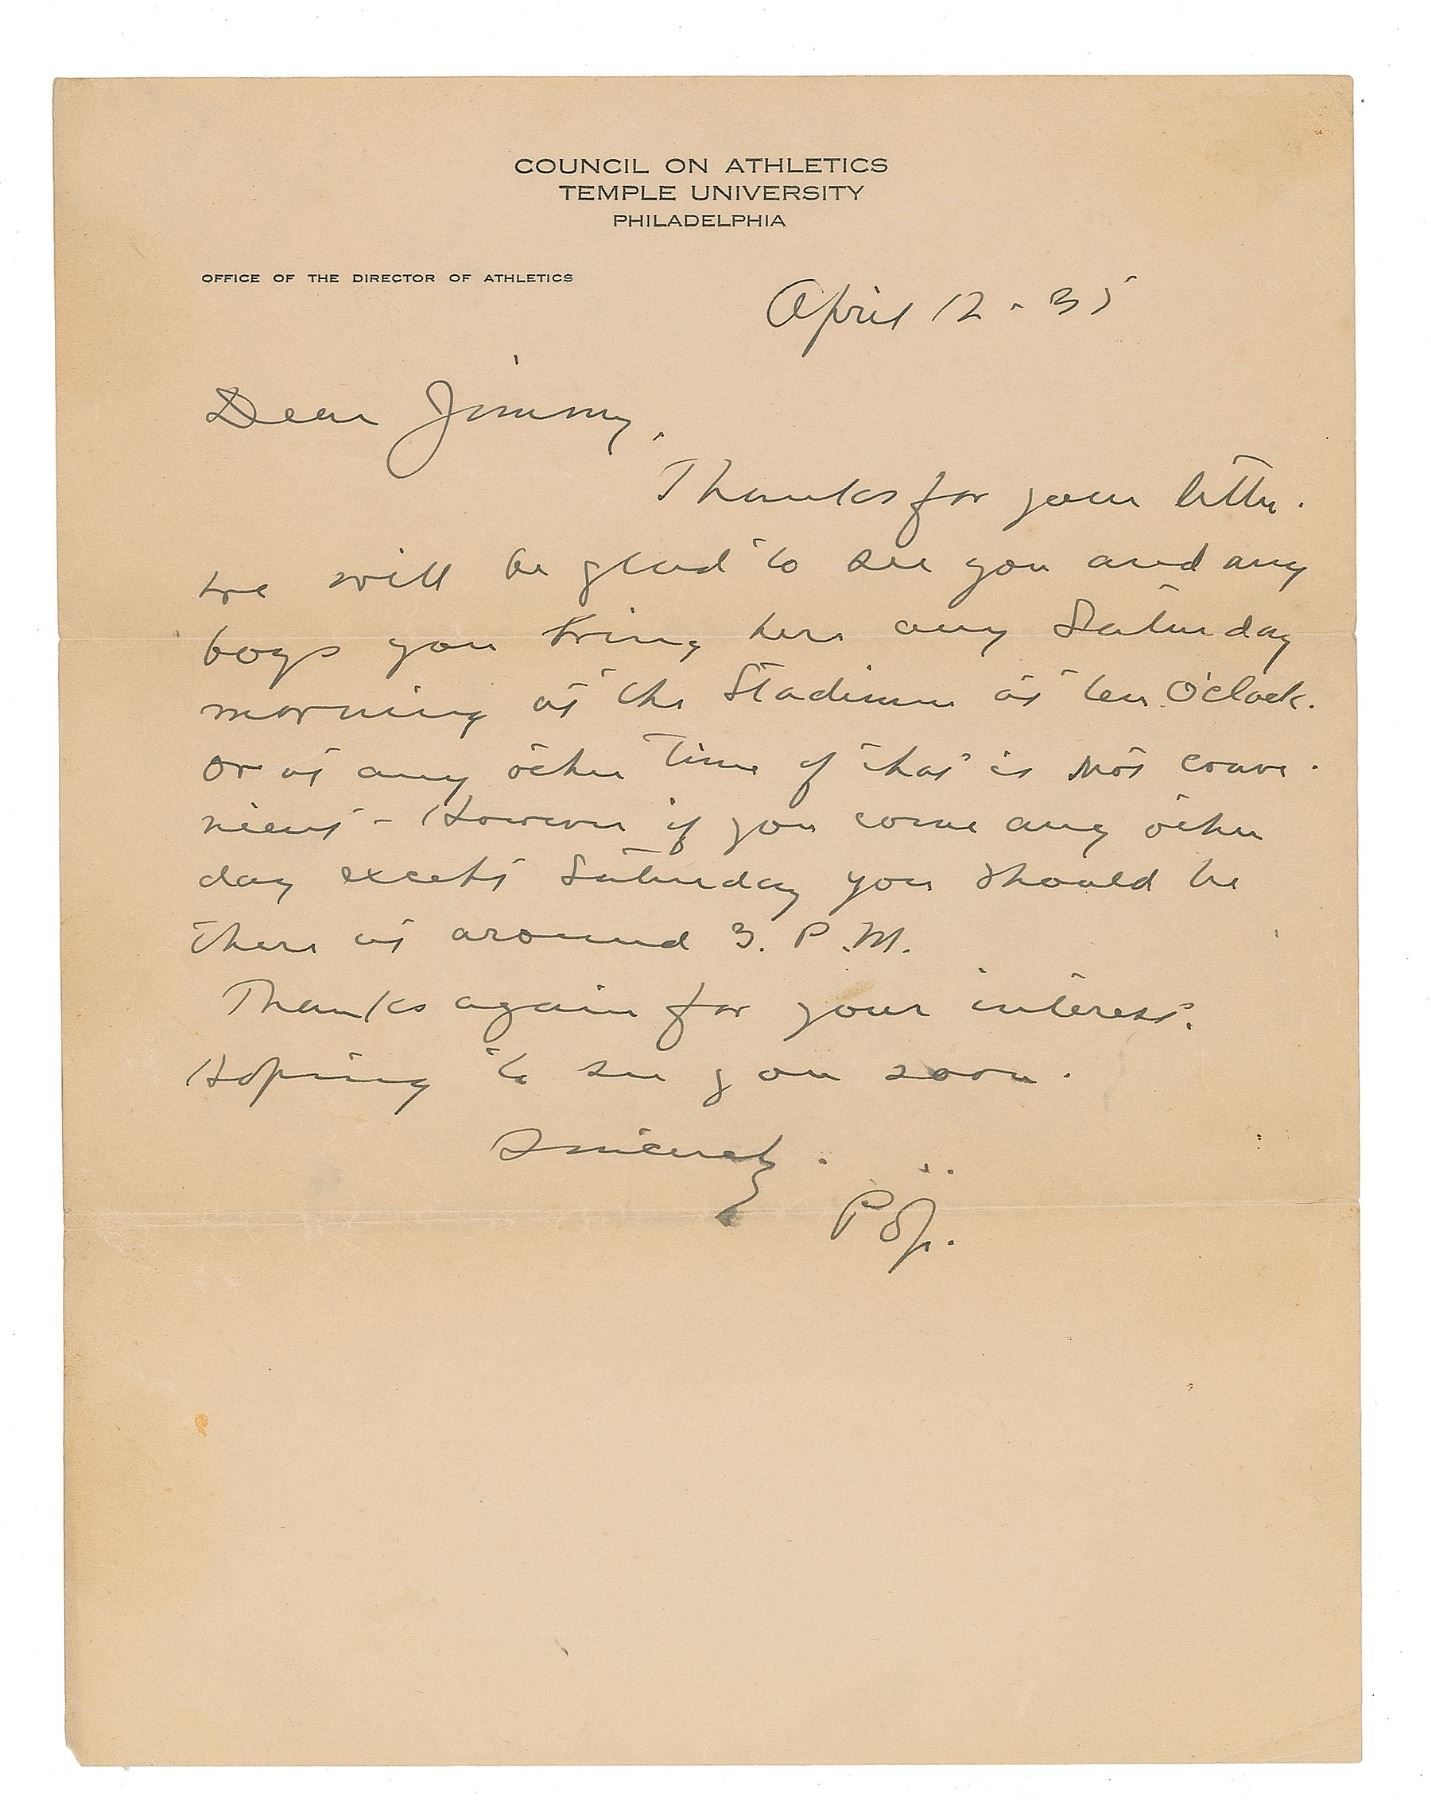 COUNCIL ON ATHLETICS
TEMPLE UNIVERSITY
PHILADELPHIA
OFFICE OF THE DIRECTOR OF ATHLETICS
April 12 - 35
Dear Jimmy,
Thanks for your letter.
We will be glad to see you and any
boys you bring here any Saturday
morning at the Stadium at ten O'clock.
or at any other time if that is not conve-
nient - However if you come any other
day except Saturday you should be
there at around 3. P.M.
Thanks again for your interest.
Hoping to see you soon.
Sincerely.
Pop.